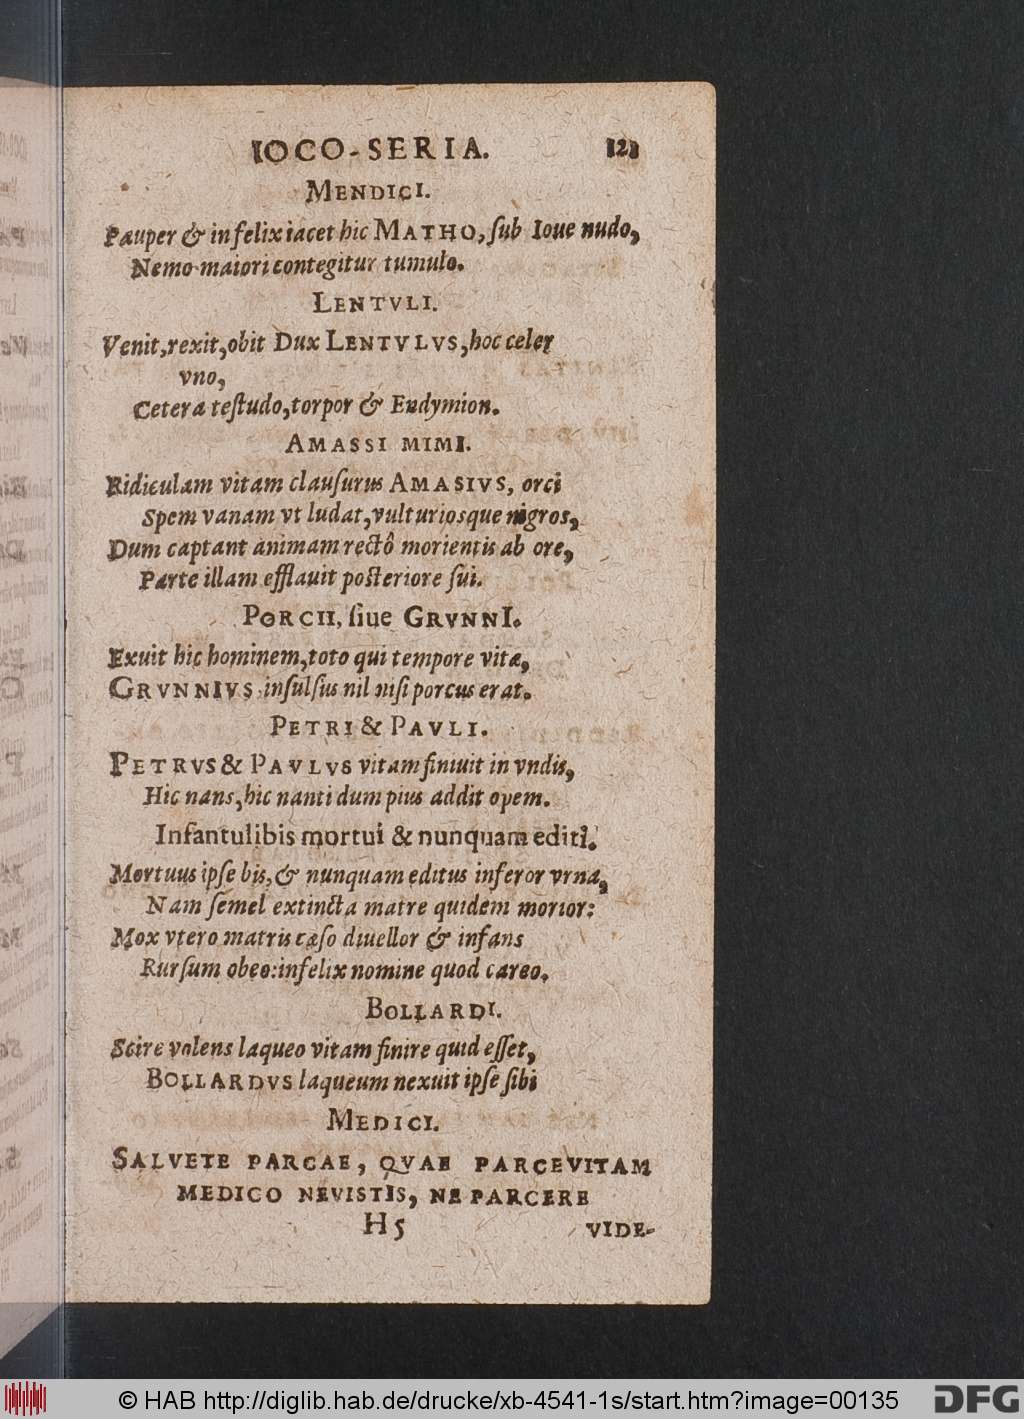 IOCO-SERIA. 121
MENDICI.
Pauper & infelix iacet hic MATHO, ſub Ioue nudo,
Nemo maiori contegitur tumulo.
LENTVLI.
Venit, rexit, obit Dux LENTVLVS, hoc celer
vno,
Cetera teſtudo, torpor & Endymion.
AMASSI MIMI.
Ridiculam vitam clauſurus AMASIVS, orci
Spem vanam vt ludat, vulturiosque nigros,
Dum captant animam rectô morientis ab ore,
Parte illam efflauit poſteriore ſui.
PORCII, ſiue GRVNNI.
Exuit hic hominem, toto qui tempore vitæ,
GRVNNIVS inſulſius nil niſi porcus erat.
PETRI & PAVLI.
PETRVS & PAVLVS vitam finiuit in vndis,
Hic nans, hic nanti dum pius addit opem.
Infantuli bis mortui & nunquam editi.
Mortuus ipſe bis, & nunquam editus inferor vrna,
Nam ſemel extincta matre quidem morior:
Mox vtero matris cæſo diuellor & infans
Rurſum obeo: infelix nomine quod careo.
BOLLARDI.
Scire volens laqueo vitam finire quid eſſet,
BOLLARDVS laqueum nexuit ipſe ſibi
MEDICI.
SALVETE PARCAE, QVAE PARCE VITAM
MEDICO NEVISTIS, NE PARCERE
H5 VIDE-
© HAB http://diglib.hab.de/drucke/xb-4541-1s/start.htm?image=00135
DFG